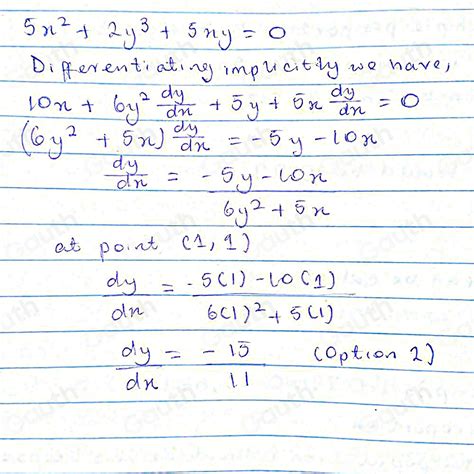 5x² + 2y³ + 5xy = 0
Differentiating implicitly we have,
10x + 6y² dy/dx + 5y + 5x dy/dx = 0
(6y² + 5x) dy/dx = -5y - 10x
dy/dx = -5y - 10x / 6y² + 5x
at point (1, 1)
dy/dx = -5(1) - 10(1) / 6(1)² + 5(1)
dy/dx = -15 / 11 (Option 2)